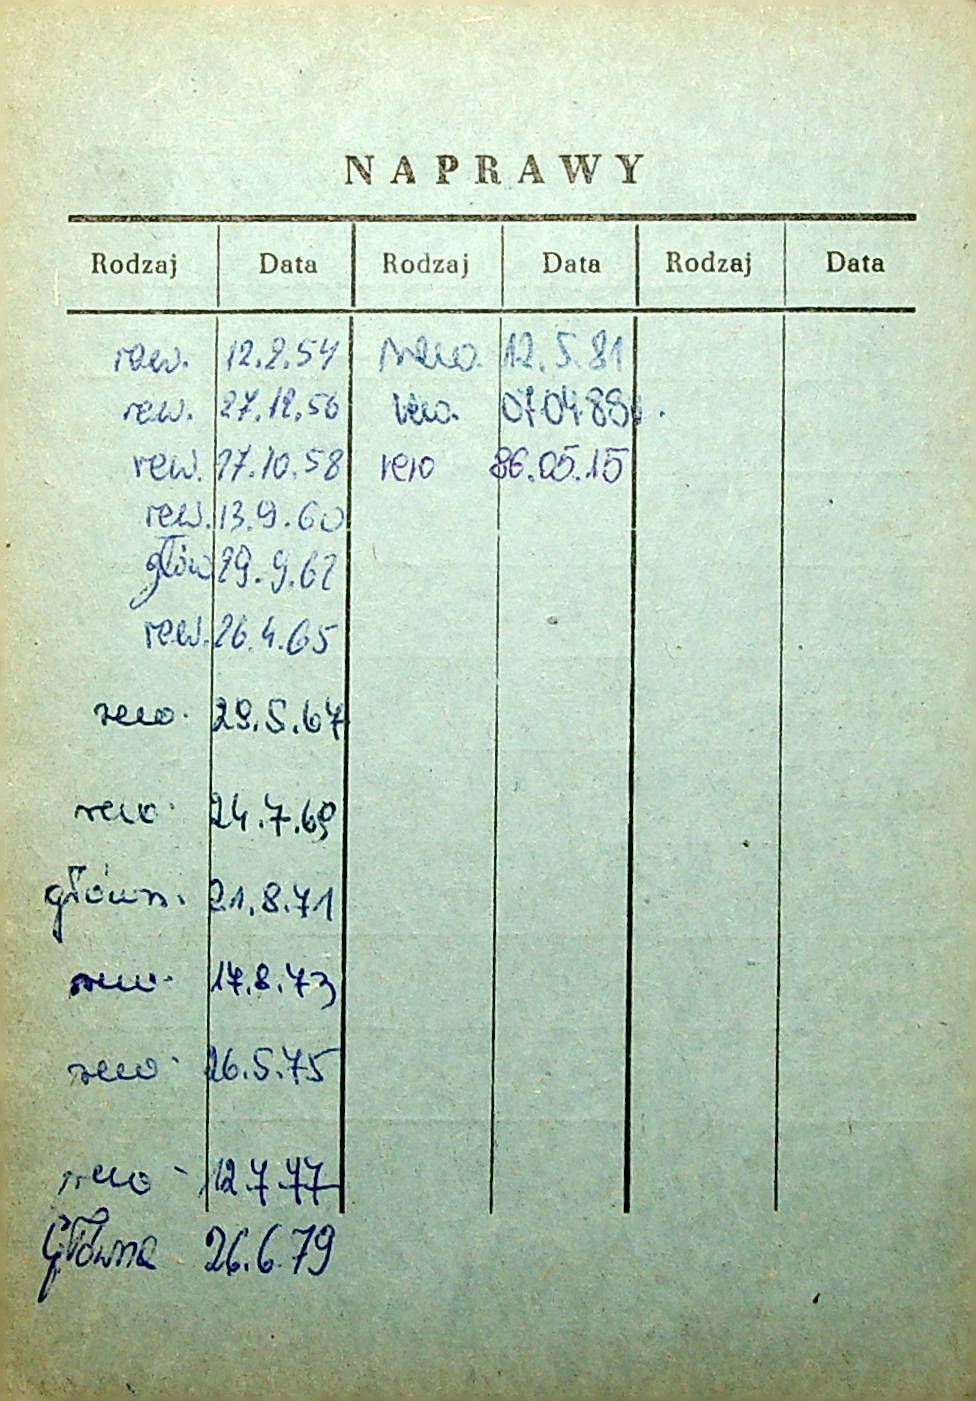 NAPRAWY
Rodzaj Data Rodzaj Data Rodzaj Data
rew. 12.2.54 rew. 12.5.81
rew. 27.12.56 rew.
rew. 17.10.58 rew 86.05.15
rew. 13.9.60
głów 29.9.62
rew. 26.4.65
rew. 29.5.67
rew. 24.7.69
główn. 21.8.71
rew. 17.8.73
rew. 26.5.75
rew- 12.7.77
Główna 26.6.79